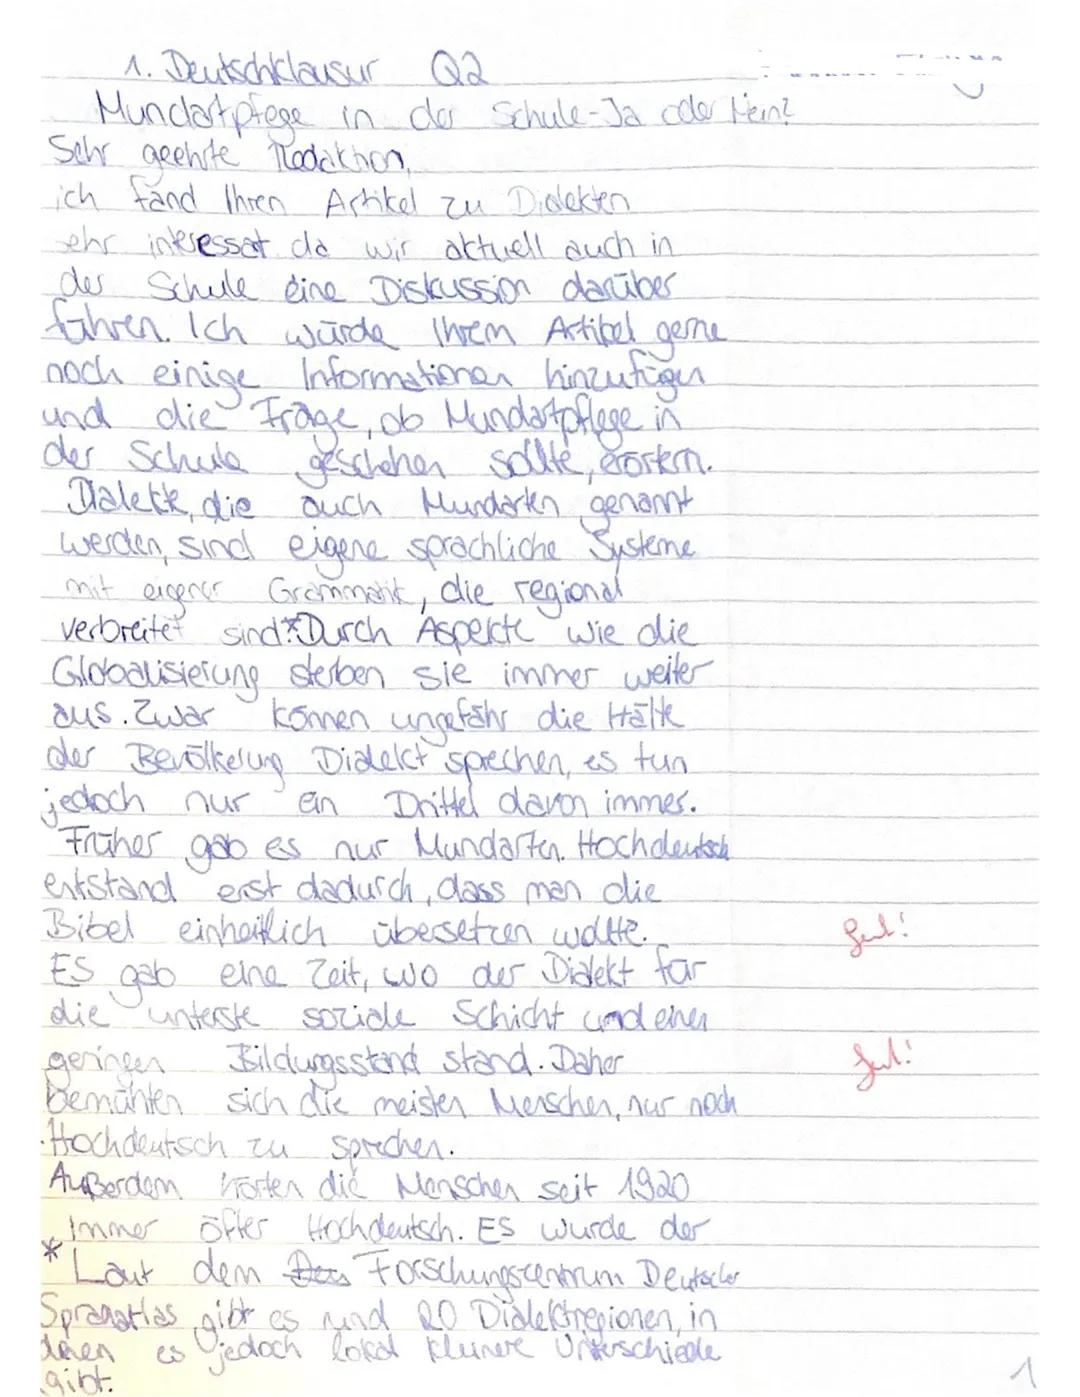 1. Deutschklausur Q2
Mundartpfege in der Schule-Ja oder Nein?
Sehr geehrte Redaktion,
ich fand Ihren Artikel zu Dialekten
sehr interessat da wir aktuell auch in
der Schule eine Diskussion darüber
führen. Ich würde Ihrem Artikel gerne
noch einige Informationen hinzufügen
und die Frage, ob Mundartpflege in
der Schule geschehen sollte, erörtern.
Dialekte, die auch Mundarten genannt
werden, sind eigene sprachliche Systeme
mit eigener Grammatik, die regional
verbreitet sind.* Durch Aspekte wie die
Globalisierung sterben sie immer weiter
aus. Zwar können ungefähr die Hälte
der Bevölkerung Dialekt sprechen, es tun
jedoch nur ein Drittel davon immer.
Früher gab es nur Mundarten. Hochdeutsch
entstand erst dadurch, dass man die
Bibel einheitlich übersetzen wollte. Gut!
ES gab eine Zeit, wo der Dialekt für
die unterste soziale Schicht und einen
geringen Bildungsstand stand. Daher Gut!
bemühten sich die meisten Menschen, nur noch
Hochdeutsch zu sprechen.
Außerdem hörten die Menschen seit 1920
immer öfter Hochdeutsch. ES wurde der
* Laut dem Forschungscentrum Deutscher
Spragatlas gibt es rund 20 Dialektregionen, in
denen es jedoch lokal kleinere Unterschiede
gibt.
1